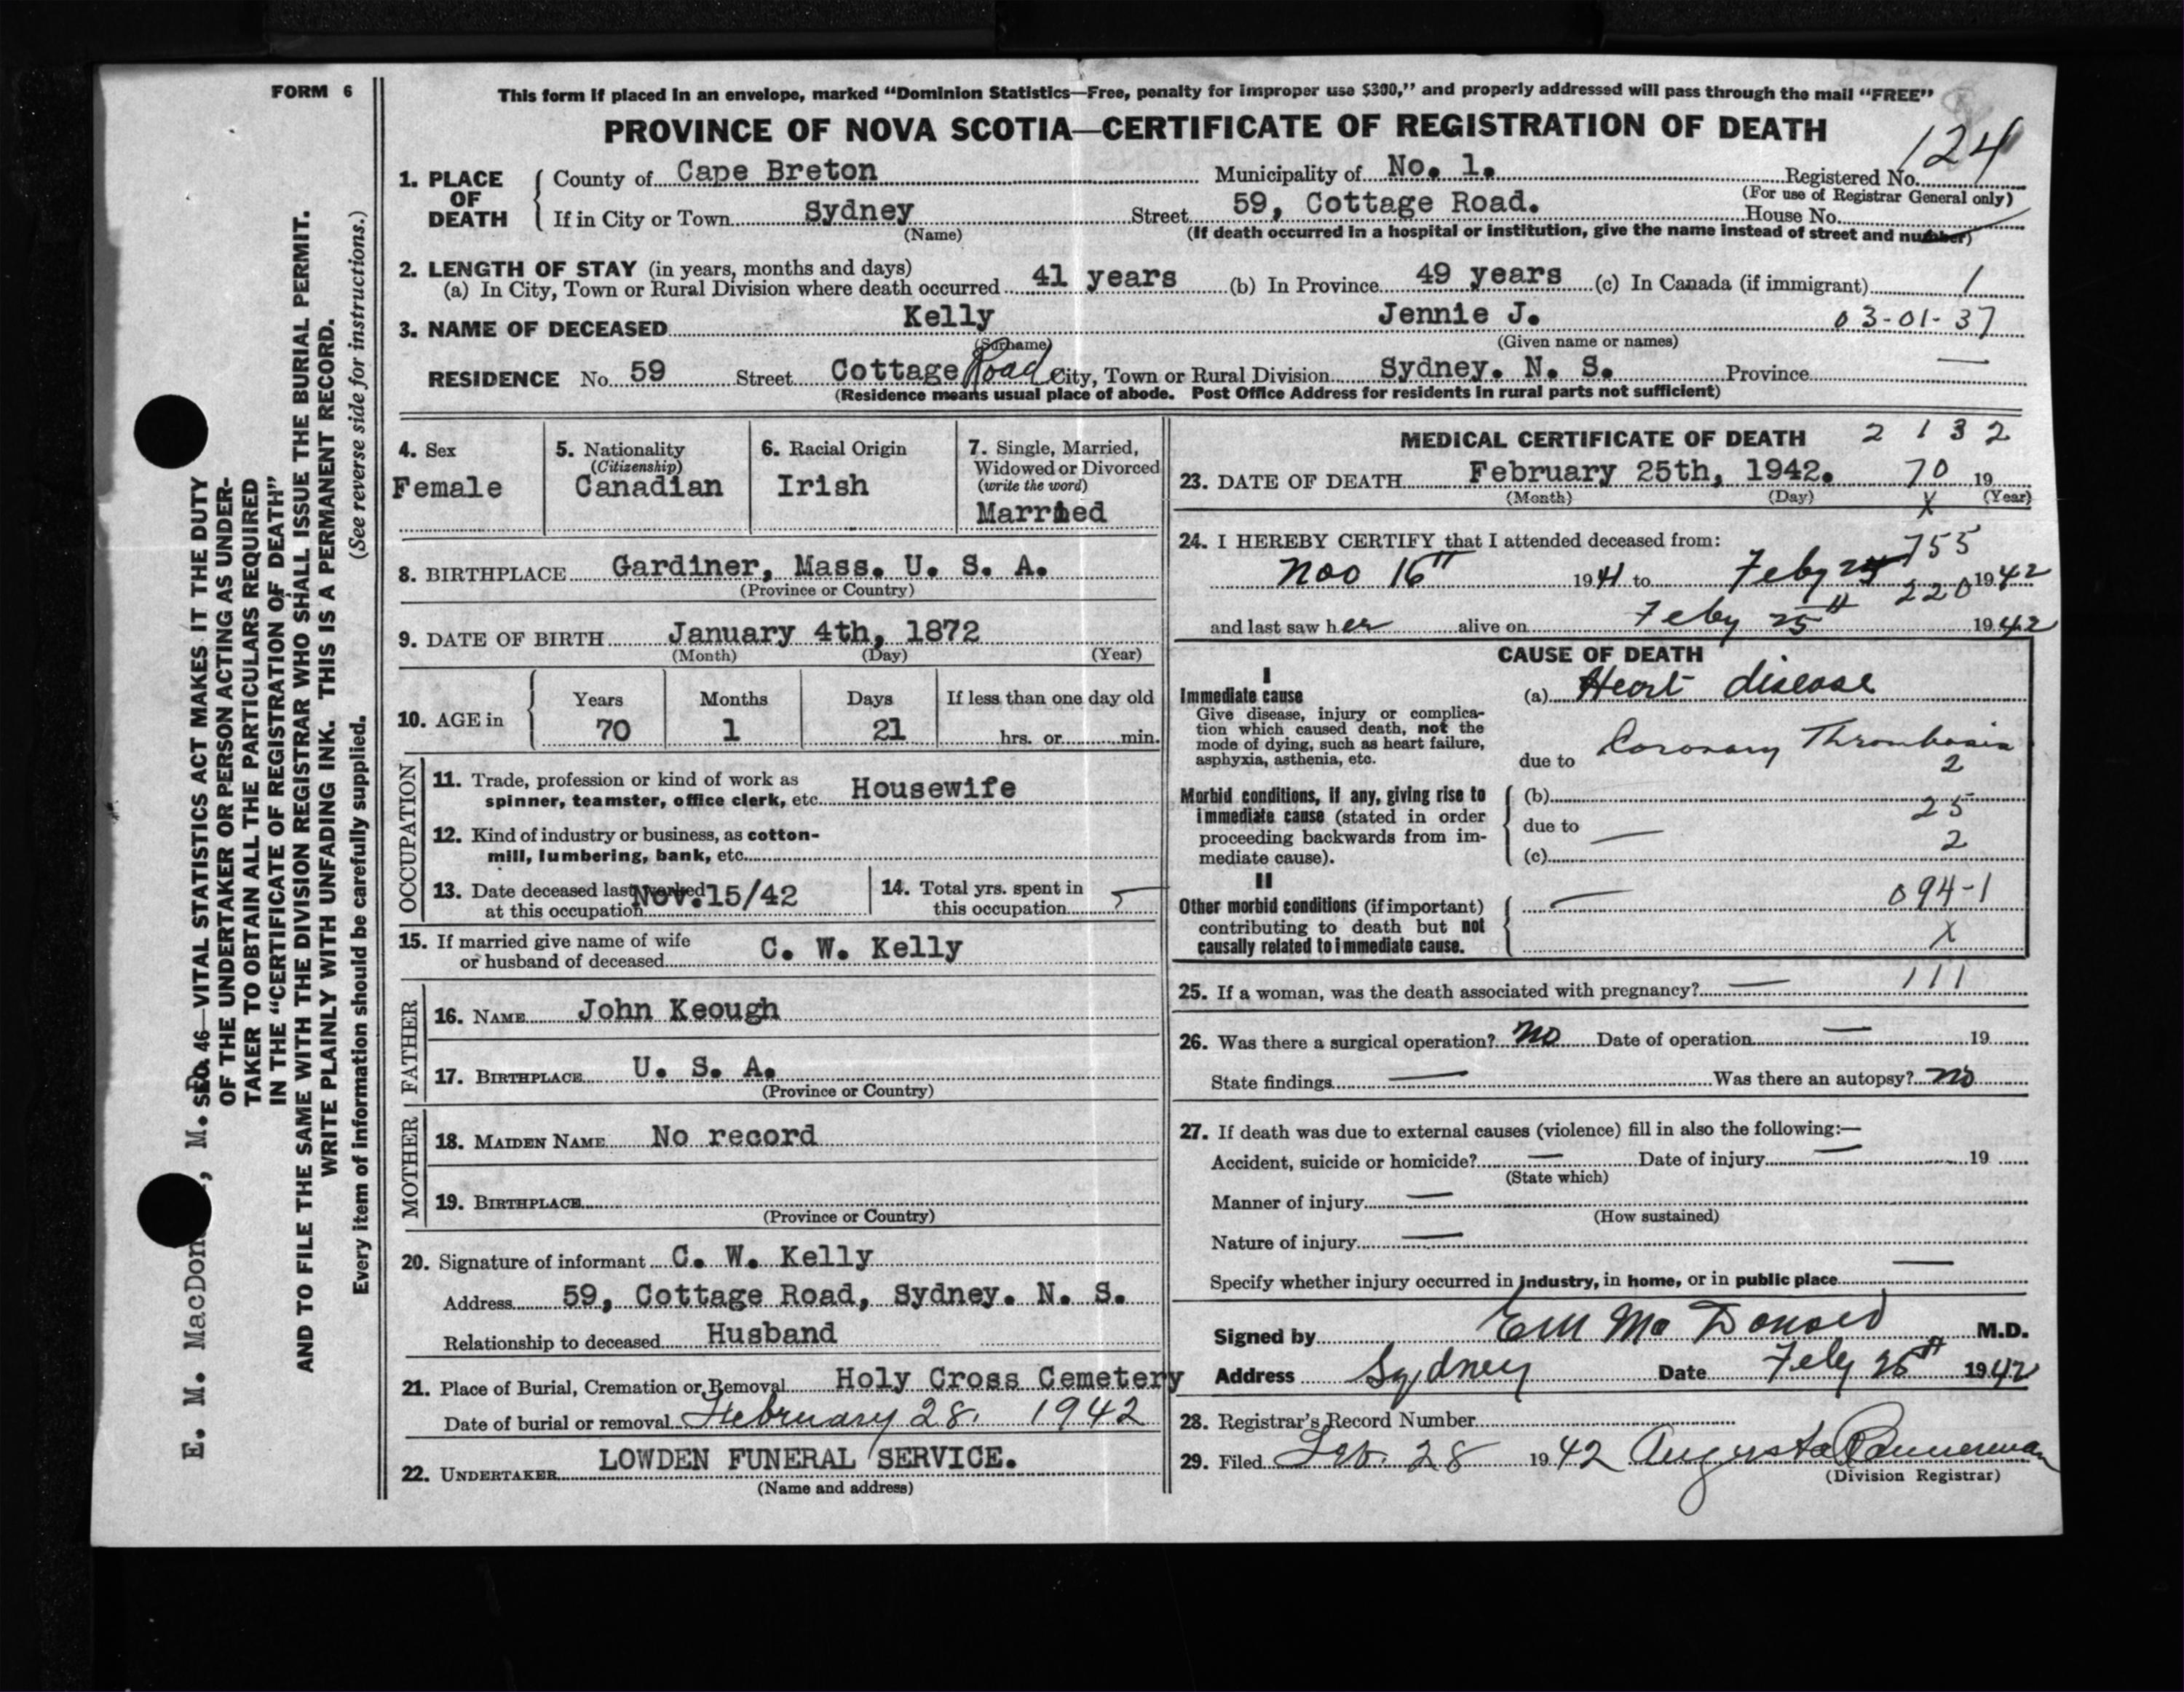 FORM 6
This form if placed in an envelope, marked “Dominion Statistics—Free, penalty for improper use $300,” and properly addressed will pass through the mail “FREE”
PROVINCE OF NOVA SCOTIA—CERTIFICATE OF REGISTRATION OF DEATH
124
1. PLACE OF DEATH
County of Cape Breton Municipality of No. 1. Registered No.
(For use of Registrar General only)
If in City or Town Sydney Street 59, Cottage Road. House No.
(Name) (If death occurred in a hospital or institution, give the name instead of street and number)
2. LENGTH OF STAY (in years, months and days)
(a) In City, Town or Rural Division where death occurred 41 years (b) In Province 49 years (c) In Canada (if immigrant) 1
3. NAME OF DECEASED Kelly Jennie J. 03-01-37
(Surname) (Given name or names)
RESIDENCE No. 59 Street Cottage Road City, Town or Rural Division Sydney. N. S. Province —
(Residence means usual place of abode. Post Office Address for residents in rural parts not sufficient)
4. Sex
Female
5. Nationality
(Citizenship)
Canadian
6. Racial Origin
Irish
7. Single, Married,
Widowed or Divorced
(write the word)
Married
8. BIRTHPLACE Gardiner, Mass. U. S. A.
(Province or Country)
9. DATE OF BIRTH January 4th, 1872
(Month) (Day) (Year)
10. AGE in
Years Months Days If less than one day old
70 1 21 hrs. or min.
OCCUPATION
11. Trade, profession or kind of work as
spinner, teamster, office clerk, etc. Housewife
12. Kind of industry or business, as cotton-
mill, lumbering, bank, etc.
13. Date deceased last worked
at this occupation Nov. 15/42
14. Total yrs. spent in
this occupation
15. If married give name of wife
or husband of deceased C. W. Kelly
FATHER
16. NAME John Keough
17. BIRTHPLACE U. S. A.
(Province or Country)
MOTHER
18. MAIDEN NAME No record
19. BIRTHPLACE
(Province or Country)
20. Signature of informant C. W. Kelly
Address 59, Cottage Road, Sydney. N. S.
Relationship to deceased Husband
21. Place of Burial, Cremation or Removal Holy Cross Cemetery
Date of burial or removal February 28, 1942
22. UNDERTAKER LOWDEN FUNERAL SERVICE.
(Name and address)
MEDICAL CERTIFICATE OF DEATH 2 1 3 2
23. DATE OF DEATH February 25th, 1942. 70 19
(Month) (Day) X (Year)
24. I HEREBY CERTIFY that I attended deceased from:
755
Nov 16th 1941 to Feby 1942
220
and last saw her alive on Feby 25th 1942
CAUSE OF DEATH
I
Immediate cause
Give disease, injury or complica-
tion which caused death, not the
mode of dying, such as heart failure,
asphyxia, asthenia, etc.
(a) Heart disease
due to Coronary Thrombosis
2
Morbid conditions, if any, giving rise to
immediate cause (stated in order
proceeding backwards from im-
mediate cause).
(b)
25
due to —
2
(c)
II
Other morbid conditions (if important)
contributing to death but not
causally related to immediate cause.
— 094-1
X
25. If a woman, was the death associated with pregnancy? — 111
26. Was there a surgical operation? No Date of operation — 19
State findings — Was there an autopsy? no
27. If death was due to external causes (violence) fill in also the following:—
Accident, suicide or homicide? — Date of injury — 19
(State which)
Manner of injury —
(How sustained)
Nature of injury —
Specify whether injury occurred in industry, in home, or in public place —
Signed by E M McDonald M.D.
Address Sydney Date Feby 26th 1942
28. Registrar's Record Number
29. Filed Feb. 28 1942 Augusta Bannerman
(Division Registrar)
SEC. 46—VITAL STATISTICS ACT MAKES IT THE DUTY
OF THE UNDERTAKER OR PERSON ACTING AS UNDER-
TAKER TO OBTAIN ALL THE PARTICULARS REQUIRED
IN THE “CERTIFICATE OF REGISTRATION OF DEATH”
AND TO FILE THE SAME WITH THE DIVISION REGISTRAR WHO SHALL ISSUE THE BURIAL PERMIT.
WRITE PLAINLY WITH UNFADING INK. THIS IS A PERMANENT RECORD.
Every item of information should be carefully supplied. (See reverse side for instructions.)
E. M. MacDon , M.